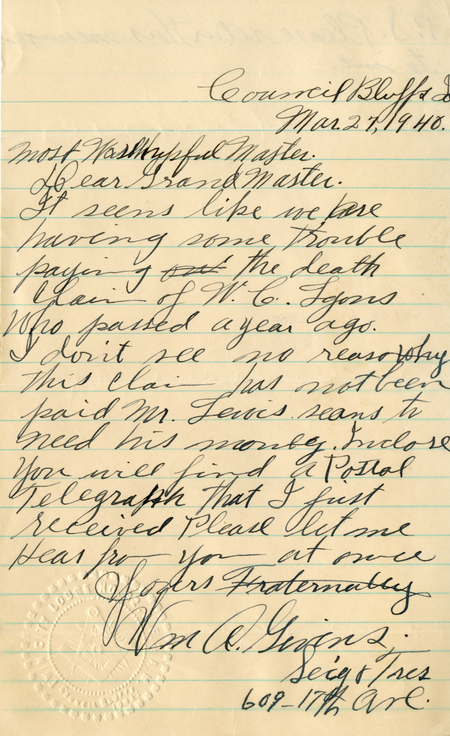 Council Bluffs
Mar. 27, 1940.
Most Worshipful Master.
Dear Grand Master.
It seems like we are
having some trouble
paying the death
Claim of W. C. Lyons
Who passed a year ago.
I don't see no reason why
this claim has not been
paid Mr. Lewis seans to
need his money. Inclose
You will find a Postal
Telegraph that I just
received Please let me
Hear from you at once
Yours Fraternally
Wm A. Givens.
Sec & Tres
609-17th Ave.